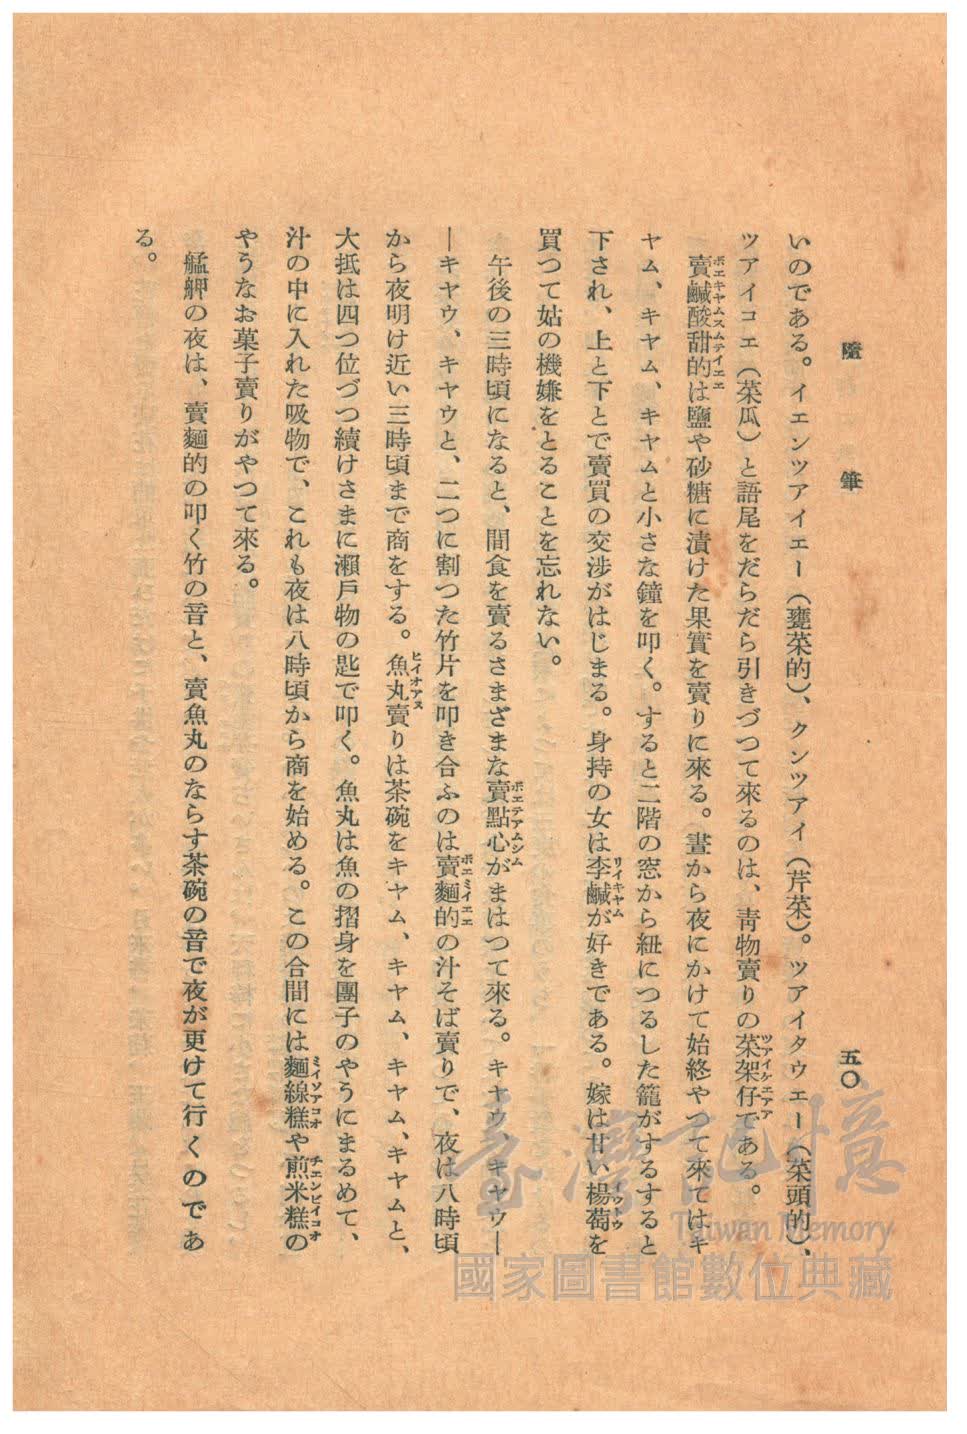 隨筆
五〇
いのである。イエンツアイエー(甕菜的)、クンツアイ(芹菜)。ツアイタウエー(菜頭的)、
ツアイコエ(菜瓜)と語尾をだらだら引きづつて來るのは、靑物賣りの菜架仔ツアイケエアアである。
賣鹹酸甜的ボエキヤムスムテイエエは鹽や砂糖に漬けた果實を賣りに來る。晝から夜にかけて始終やつて來てはキ
ヤム、キヤム、キヤムと小さな鐘を叩く。すると二階の窓から紐につるした籠がするすると
下され、上と下とで賣買の交渉がはじまる。身持の女は李鹹リイキヤムが好きである。嫁は甘い楊萄を
買つて姑の機嫌をとることを忘れない。
午後の三時頃になると、間食を賣るさまざまな賣點心ボエテアムシムがまはつて來る。キヤウ、キヤウ—
—キヤウ、キヤウと、二つに割つた竹片を叩き合ふのは賣麵的ボエミイエエの汁そば賣りで、夜は八時頃
から夜明け近い三時頃まで商をする。魚丸ヒイオアヌ賣りは茶碗をキヤム、キヤム、キヤム、キヤムと、
大抵は四つ位づつ續けさまに瀨戸物の匙で叩く。魚丸は魚の摺身を團子のやうにまるめて、
汁の中に入れた吸物で、これも夜は八時頃から商を始める。この合間には麵線糕ミイソアコオや煎米糕チエンビイコオの
やうなお菓子賣りがやつて來る。
艋舺の夜は、賣麵的の叩く竹の音と、賣魚丸のならす茶碗の音で夜が更けて行くのであ
る。
臺灣記憶
Taiwan Memory
國家圖書館數位典藏